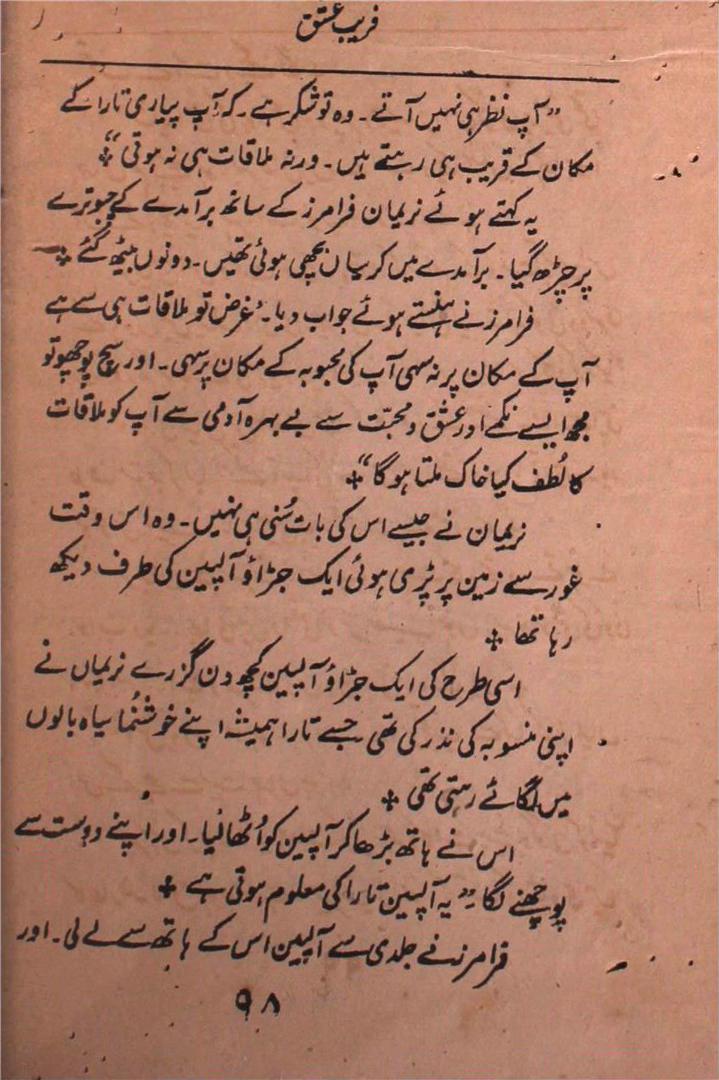 فریبِ عشق
”آپ نظر ہی نہیں آتے۔ وہ تو شکر ہے۔ کہ آپ پیاری تارا کے
مکان کے قریب ہی رہتے ہیں۔ ورنہ ملاقات ہی نہ ہوتی“ ٭
یہ کہتے ہوئے نریمان فرامرز کے ساتھ برآمدے کے چبوترے
پر چڑھ گیا۔ برآمدے میں کرسیاں بچھی ہوئی تھیں۔ دونوں بیٹھ گئے ٭
فرامرز نے ہنستے ہوئے جواب دیا۔ ”غرض تو ملاقات ہی سے ہے
آپ کے مکان پر نہ سہی آپ کی محبوبہ کے مکان پر سہی۔ اور سچ پوچھو تو
مجھ ایسے نکمے اور عشق و محبت سے بے بہرہ آدمی سے آپ کو ملاقات
کا لُطف کیا خاک ملتا ہوگا“ ٭
نریمان نے جیسے اس کی بات سُنی ہی نہیں۔ وہ اس وقت
غور سے زمین پر پڑی ہوئی ایک جڑاؤ آلپین کی طرف دیکھ
رہا تھا ٭
اسی طرح کی ایک جڑاؤ آلپین کچھ دن گزرے نریماں نے
اپنی منسوبہ کی نذر کی تھی جسے تارا ہمیشہ اپنے خوشنُما سیاہ بالوں
میں لگائے رہتی تھی ٭
اس نے ہاتھ بڑھا کر آلپین کو اُٹھا لیا۔ اور اُپنے دوست سے
پوچھنے لگا۔ ”یہ آلپین تارا کی معلوم ہوتی ہے ٭
فرامرز نے جلدی سے آلپین اس کے ہاتھ سے لے لی۔ اور
۹۸